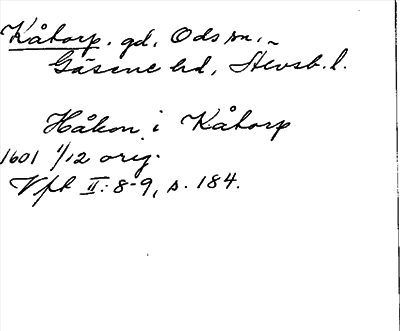 Kåtorp. gd. Ods sn.,
Gäsene hd, Älvsb. l.
Håkon i Kåtorp
1601 1/12 orig.
Vfl II: 8-9, s. 184.